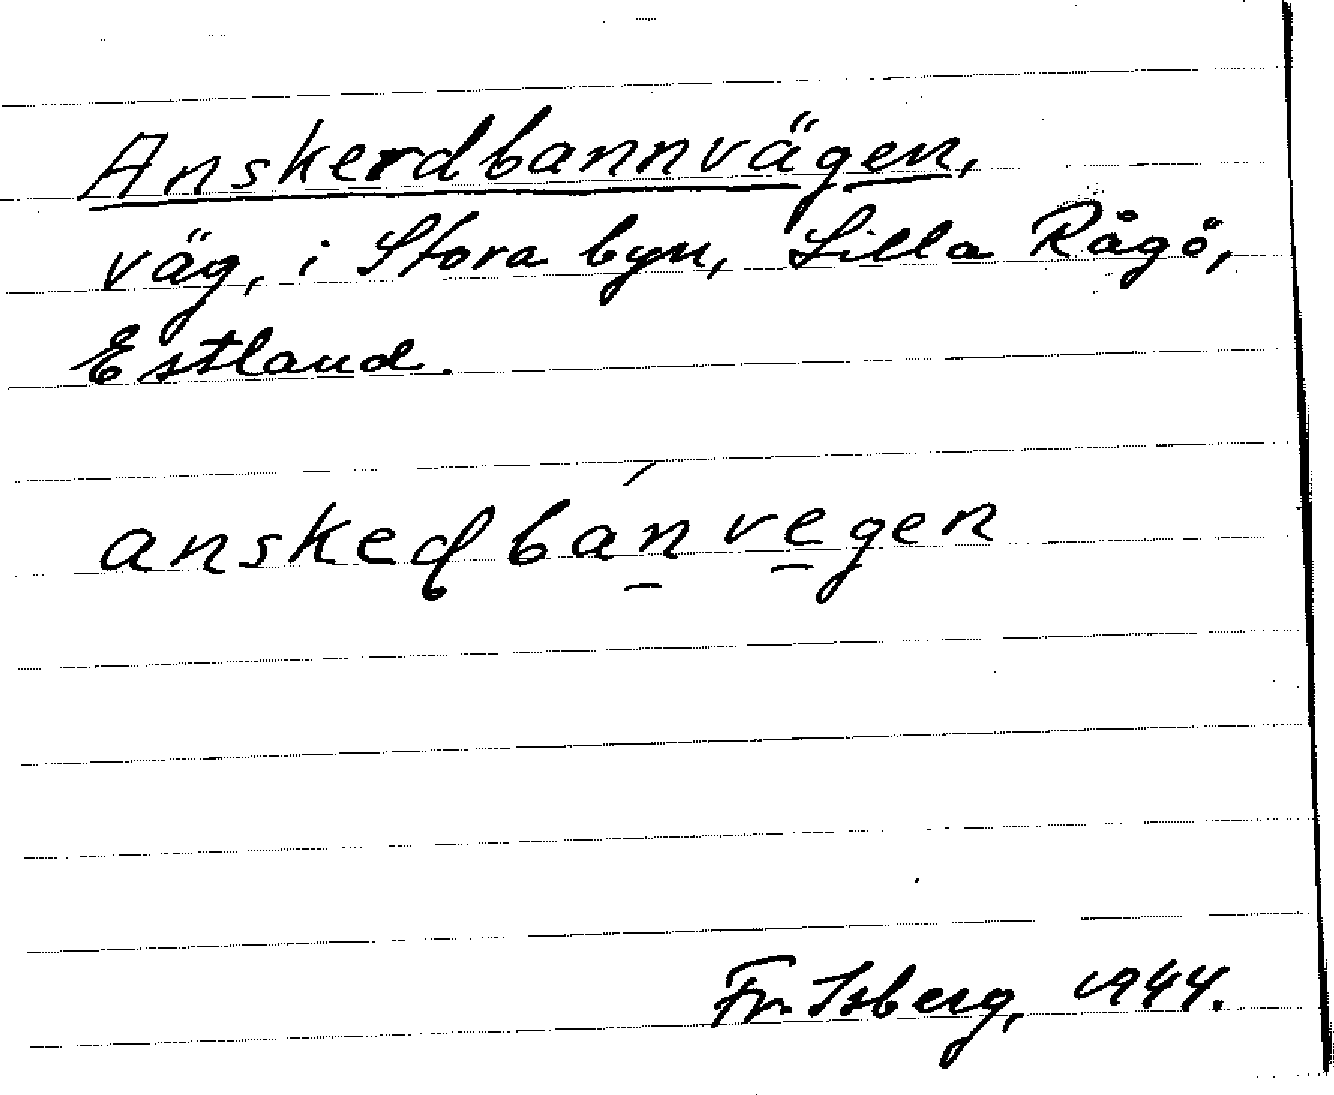 Anskerdbannvägen,
väg, i Stora byn, Lilla Rågö,
Estland.
anskedbánvegen
Fr. Isberg, 1944.